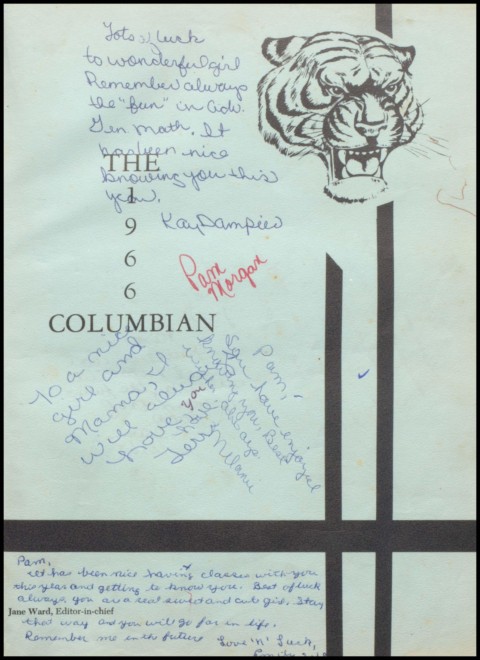 Lots of luck
to wonderful girl
Remember always
the "fun" in Adv.
Gen Math. It
has been nice
knowing you this
year.
Kay Dampier
THE
1
9
6
6
COLUMBIAN
Pam
Morgan
To a nice
girl and
Mama, I
will always
love you
Terri
Pam,
I have enjoyed
knowing you, Best
wishes always
Love
Melanie
Pam,
It has been nice having classes with you
this year and getting to know you. Best of luck
always you are a real sweet and cute girl. Stay
Jane Ward, Editor-in-chief
that way and you will go far in life.
Remember me in the future Love 'n' Luck,